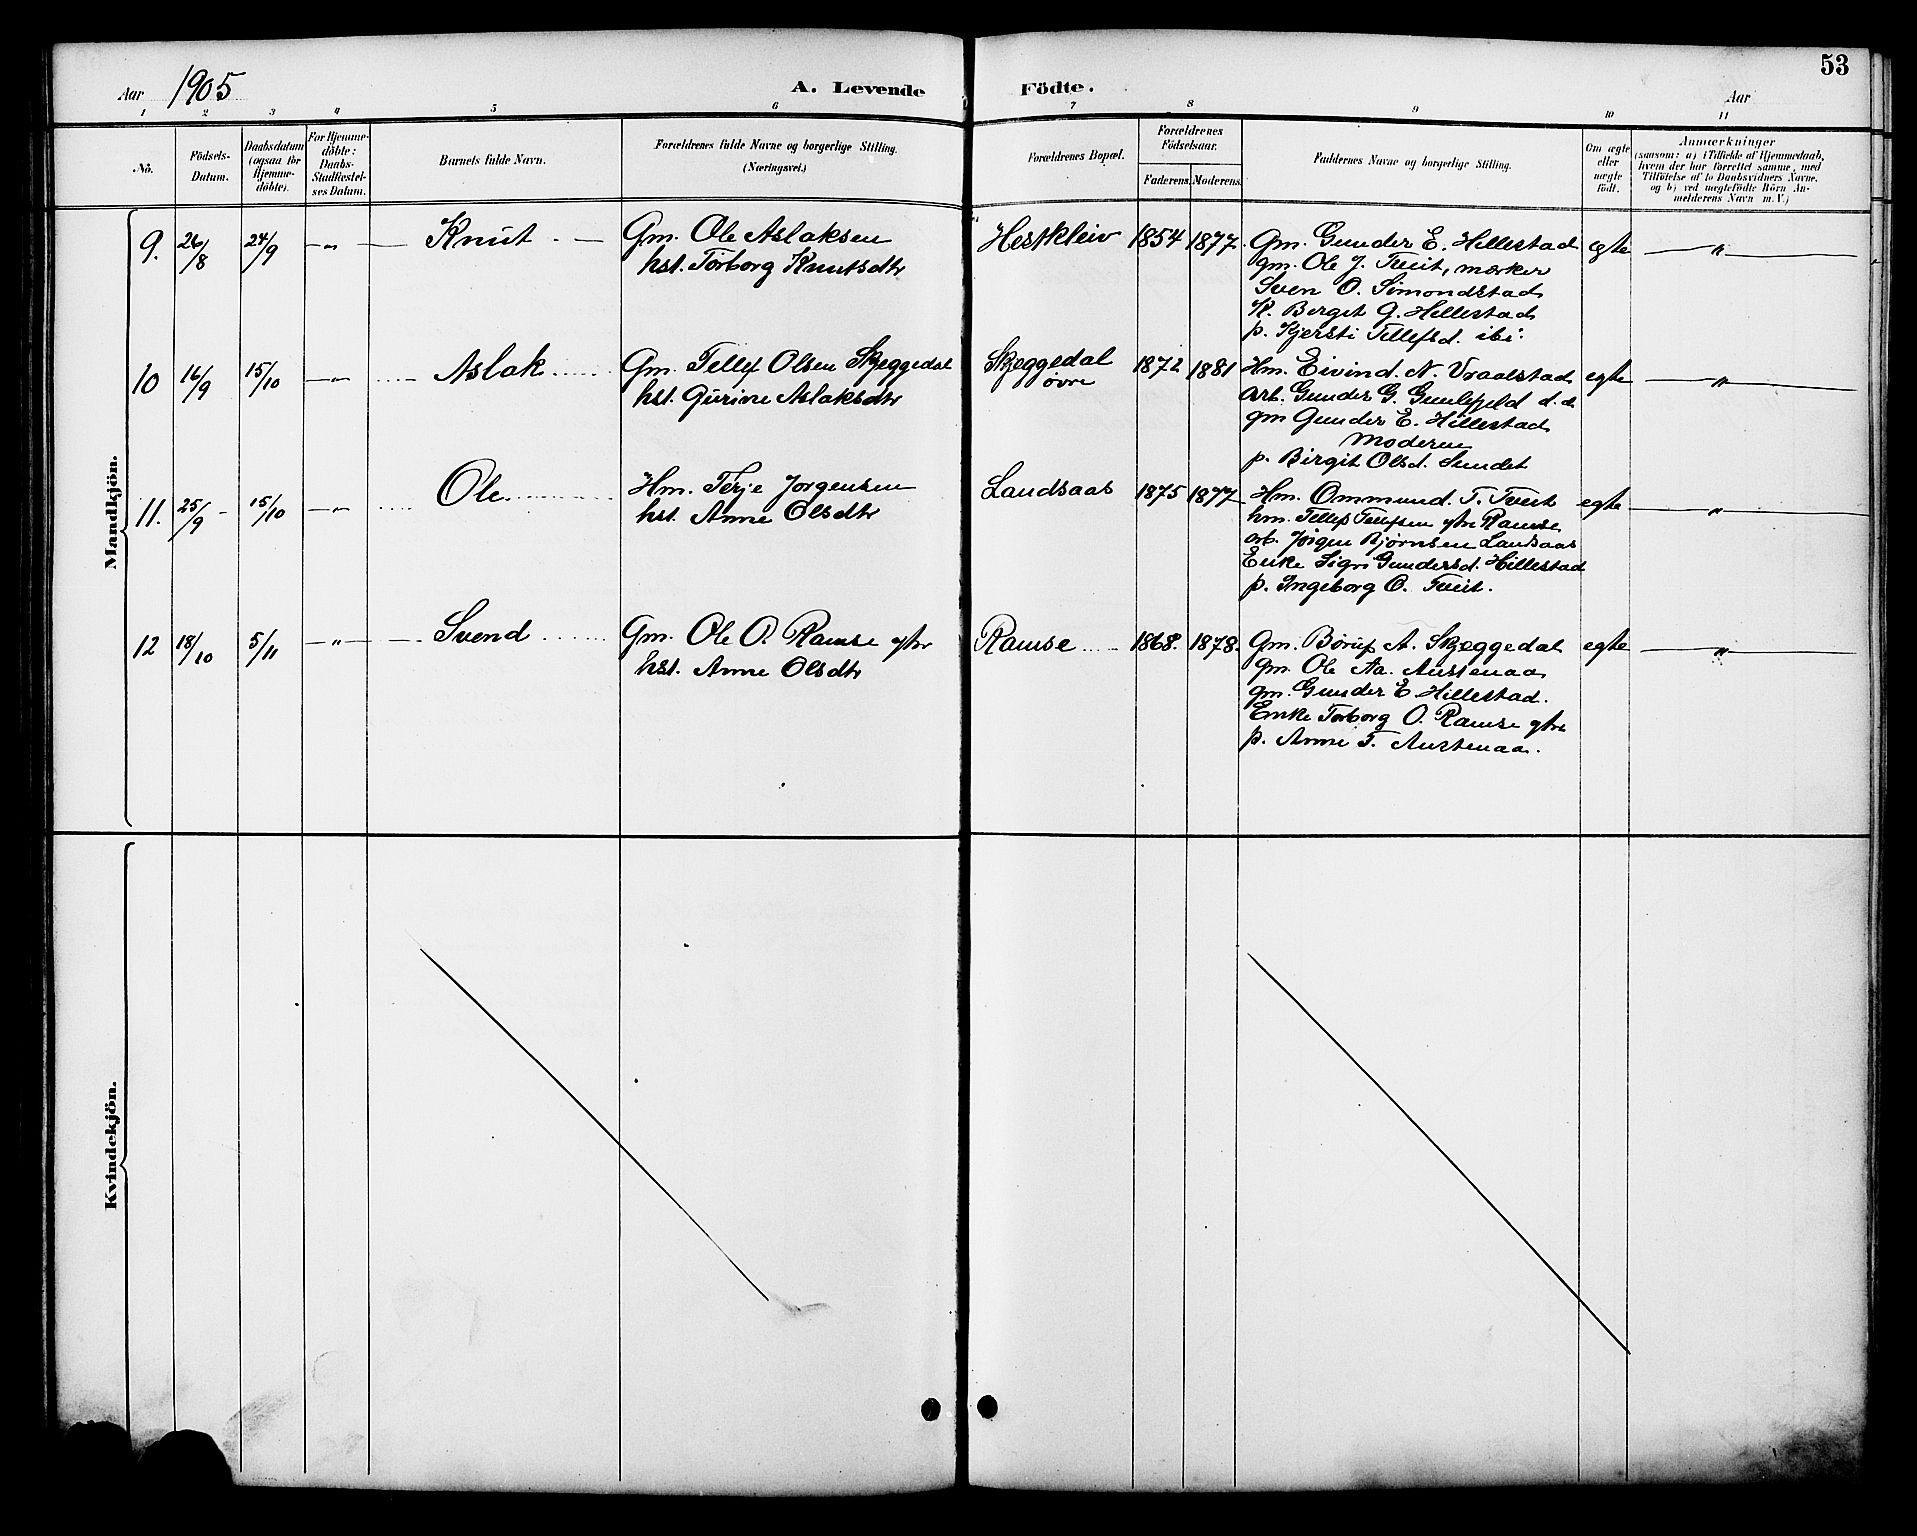 53
Aar 1905
A. Levende Födte.
Aar
1 2 3 4 5 6 7 8 9 10 11
No.
Födsels-
Datum.
Daabsdatum
(ogsaa for
Hjemme-
döbte).
For Hjemme-
döbte:
Daabs-
Stadfæstel-
ses Datum.
Barnets fulde Navn.
Forældrenes fulde Navne og borgerlige Stilling.
(Næringsvei.)
Forældrenes Bopæl.
Forældrenes
Födselsaar.
Faderens. Moderens.
Faddernes Navne og borgerlige Stilling.
Om ægte
eller
uægte
födt.
Anmærkninger
(saasom: a) i Tilfælde af Hjemmedaab,
hvem der har forrettet samme, med
Tilföielse af to Daabsvidners Navne.
og b) ved uægtefödte Börn An-
melderens Navn m. V.)
Mandkjön.
9. 26/8 24/9 — " — Knut — Gm. Ole Aslaksen
hst. Torborg Knutsdtr
Hestkleiv 1854 1877. Gm. Gunder E. Hillestad egte — " —
gm. Ole J. Tveit, mærker
Sven O. Simondstad
K. Birgit G. Hillestad
p. Kjersti Tellefsd. ibi:
10 16/9 15/10 — " — Aslak Gm. Tellef Olsen Skjeggedal
hst. Gurine Aslaksdtr
Skjeggedal
øvre
1872 1881 Hm. Eivind N. Vraalstad egte — " —
arb. Gunder G. Gunlefjeld d. d.
gm Gunder E. Hillestad
Moderen
p. Birgit Olsd. Sundet
11. 25/9 - 15/10 — " — Ole Hm. Terje Jorgensen
hst. Anne Olsdtr
Landsaas 1875 1877 Hm. Ommund T. Tveit egte — " —
hm. Tellef Tellefsen ytre Ramse
arb. Jørgen Bjørnsen Landsaas
Enke Sigri Gundersd. Hillestad
p. Ingeborg O. Tveit.
12 18/10 5/11 — " — Svend Gm. Ole O. Ramse ytre
hst. Anne Olsdtr
Ramse 1868. 1878. Gm. Børuf A. Skjeggedal egte — " —
gm. Ole Aa. Austenaa
gm. Gunder E. Hillestad.
Enke Torborg O. Ramse ytre
p. Anne T. Austenaa.
Kvindekjön.